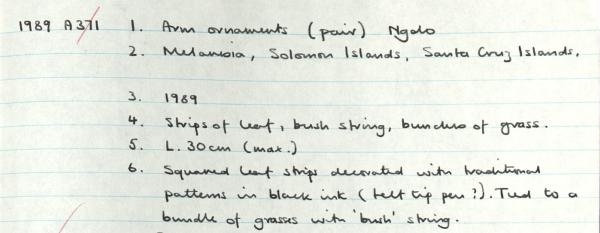 1989 A371 1. Arm ornaments (pair) Ngalo
2. Melanesia, Solomon Islands, Santa Cruz Islands.
3. 1989
4. Strips of leaf, bush string, bunches of grass.
5. L. 30cm (max.)
6. Squared leaf strips decorated with traditional
patterns in black ink (felt tip pen?). Tied to a
bundle of grasses with 'bush' string.